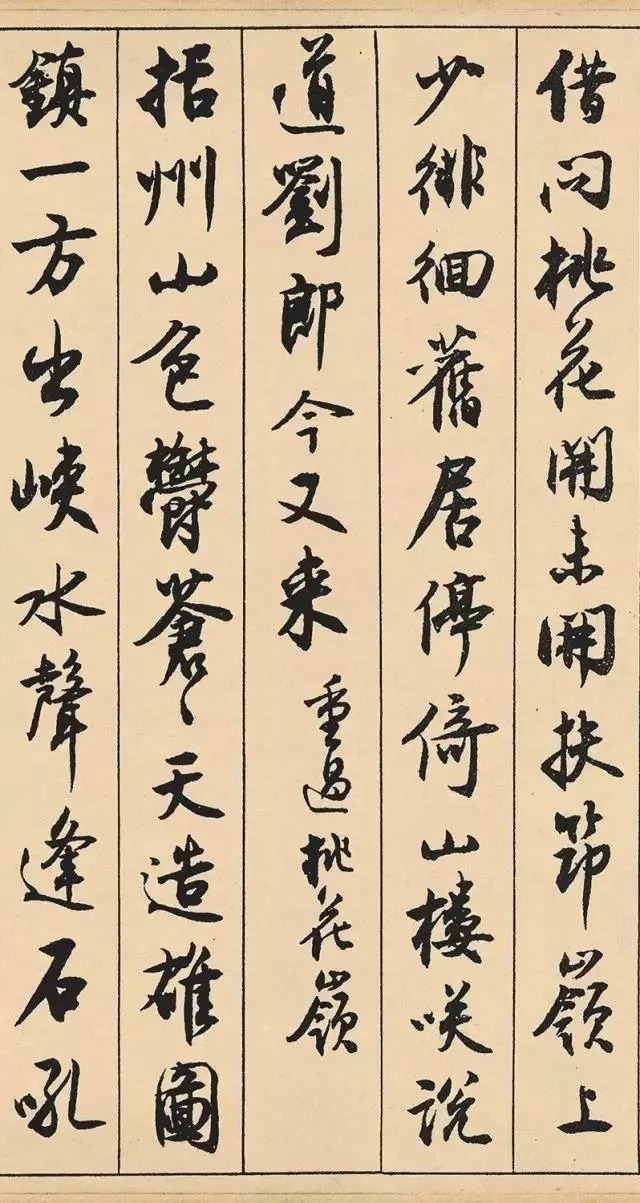 借问桃花開未開扶筇嶺上
少徘徊舊居停倚山樓咲説
道劉郎今又来
重過桃花嶺
括州山色鬱蒼〻天造雄圖
鎮一方出峽水聲逢石吼